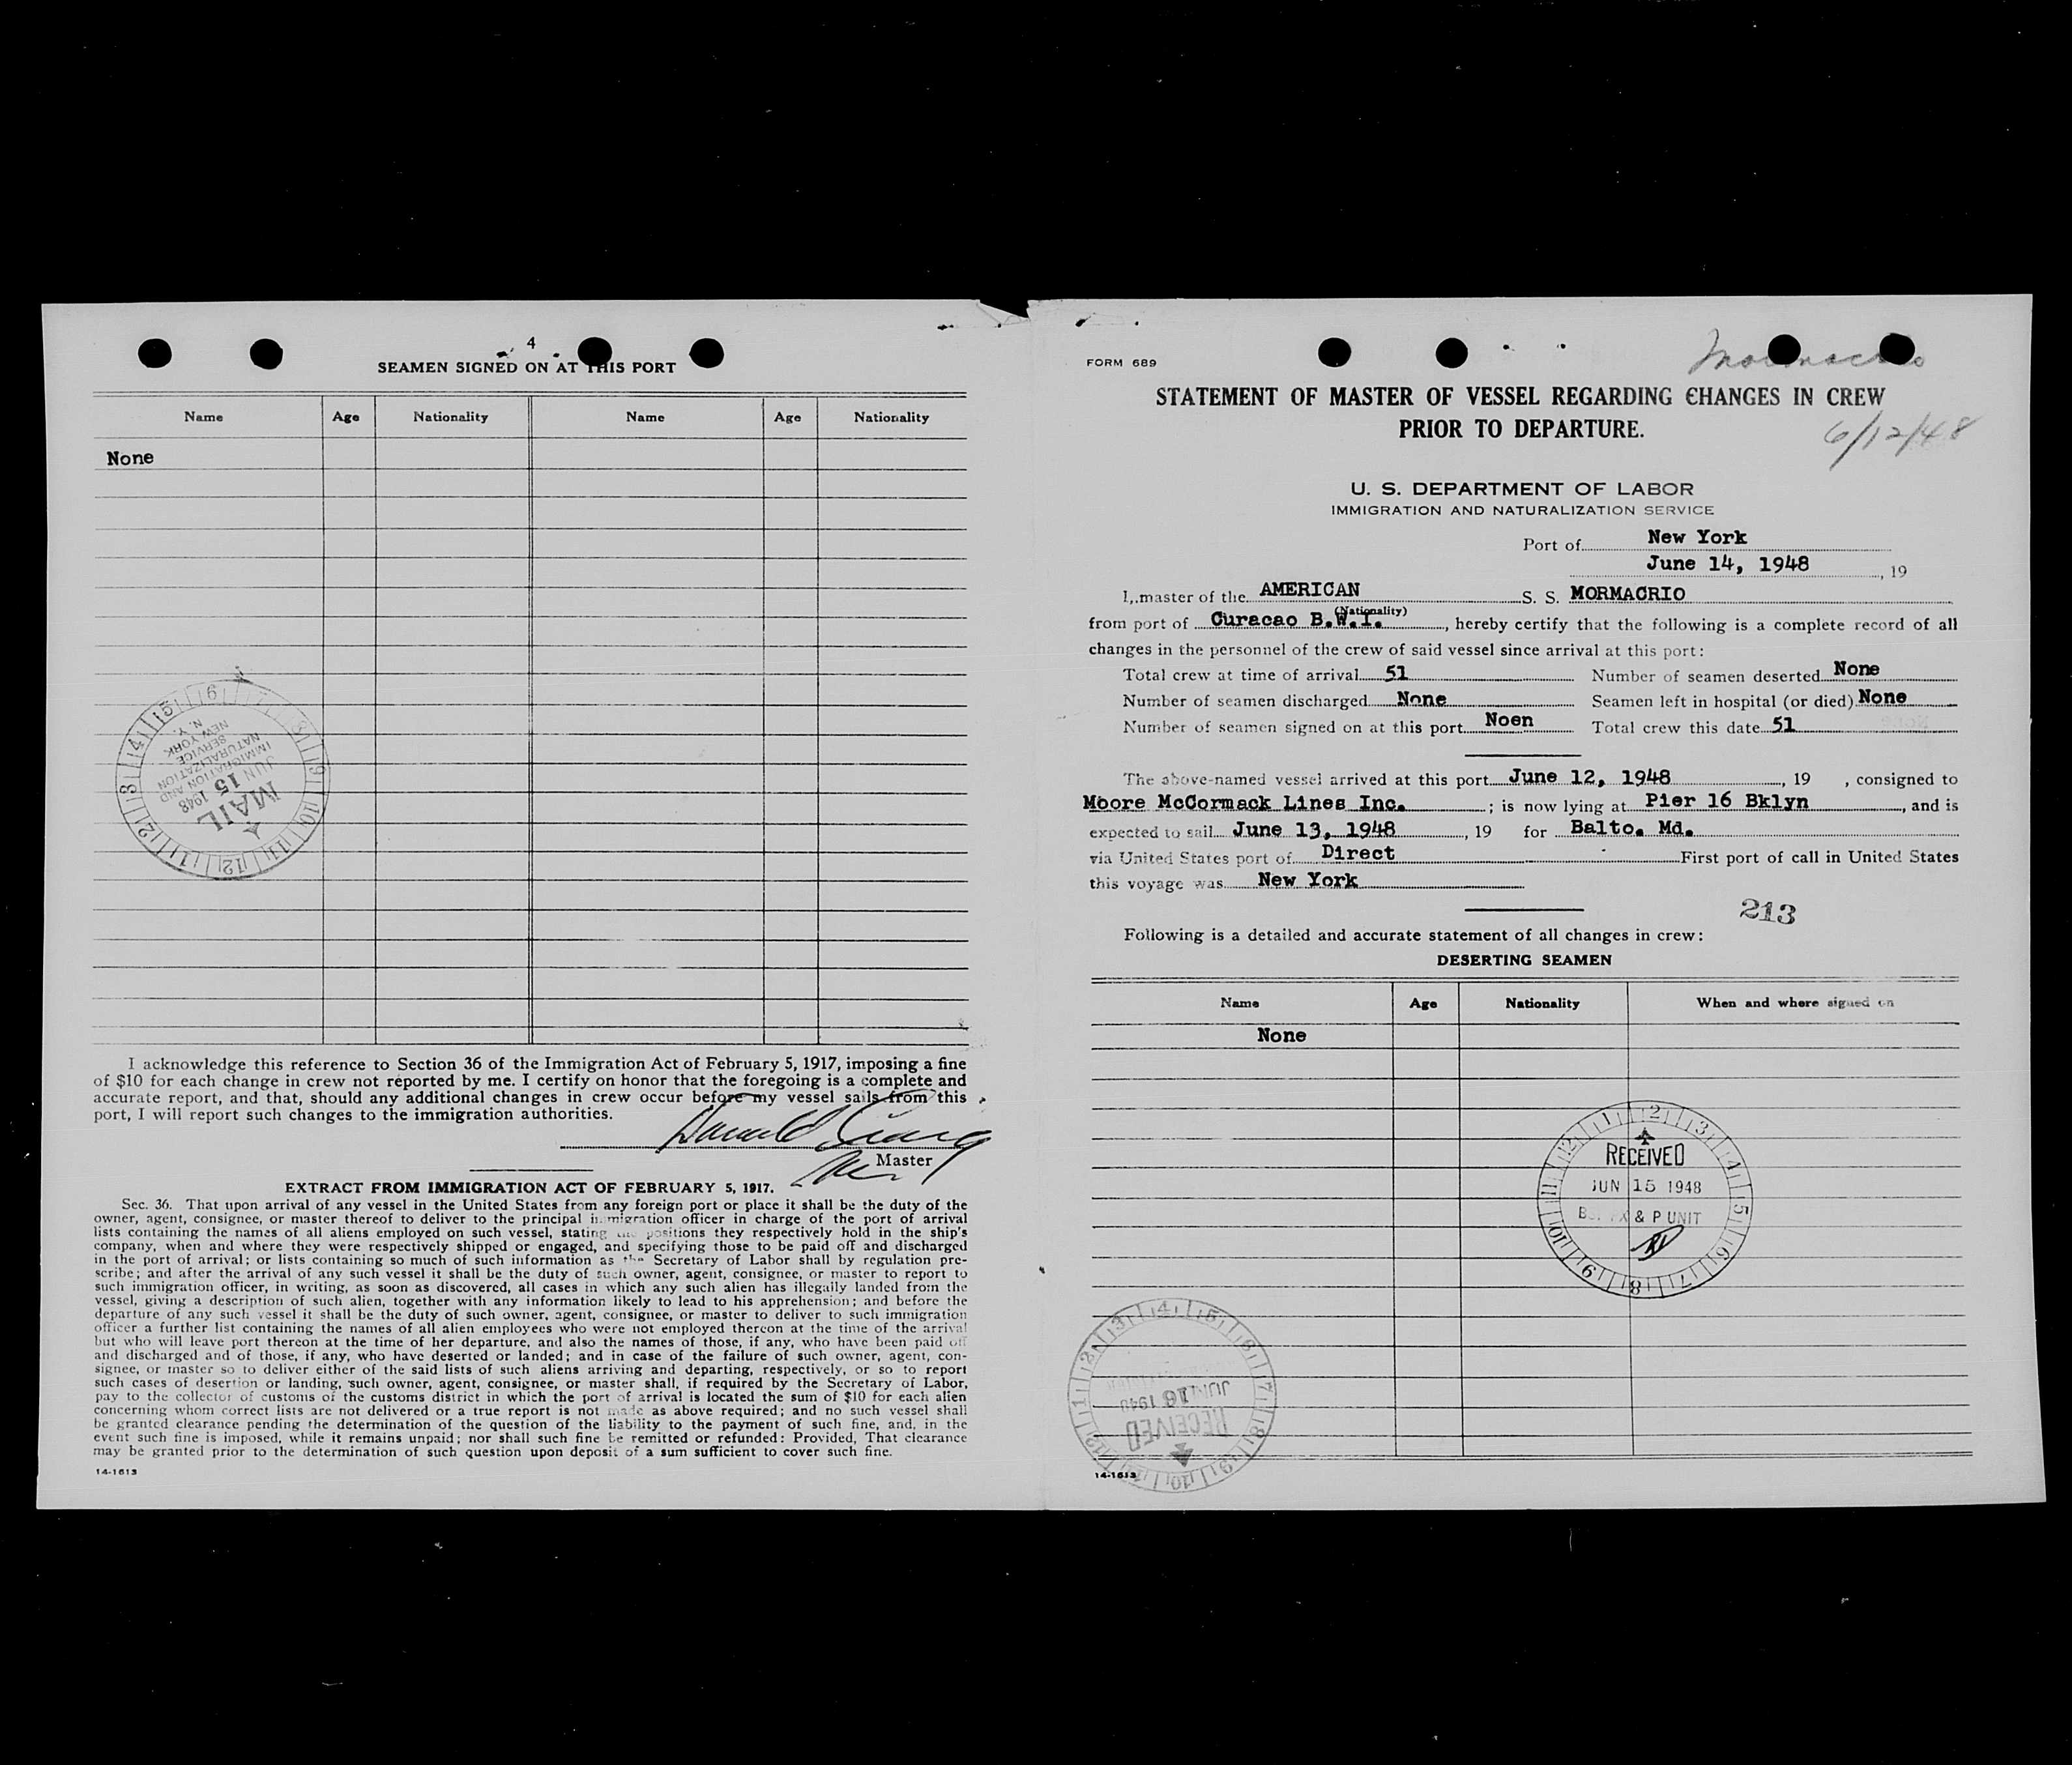 4
SEAMEN SIGNED ON AT THIS PORT
Name Age Nationality Name Age Nationality
None
6 5 4 3 2 1 12 11 10 9 8
MAIL
JUN 15 1948
IMMIGRATION AND
NATURALIZATION
SERVICE
NEW YORK
N.
I acknowledge this reference to Section 36 of the Immigration Act of February 5, 1917, imposing a fine
of $10 for each change in crew not reported by me. I certify on honor that the foregoing is a complete and
accurate report, and that, should any additional changes in crew occur before my vessel sails from this
port, I will report such changes to the immigration authorities.
Master
EXTRACT FROM IMMIGRATION ACT OF FEBRUARY 5, 1917.
Sec. 36. That upon arrival of any vessel in the United States from any foreign port or place it shall be the duty of the
owner, agent, consignee, or master thereof to deliver to the principal immigration officer in charge of the port of arrival
lists containing the names of all aliens employed on such vessel, stating the positions they respectively hold in the ship's
company, when and where they were respectively shipped or engaged, and specifying those to be paid off and discharged
in the port of arrival; or lists containing so much of such information as the Secretary of Labor shall by regulation pre-
scribe; and after the arrival of any such vessel it shall be the duty of such owner, agent, consignee, or master to report to
such immigration officer, in writing, as soon as discovered, all cases in which any such alien has illegally landed from the
vessel, giving a description of such alien, together with any information likely to lead to his apprehension; and before the
departure of any such vessel it shall be the duty of such owner, agent, consignee, or master to deliver to such immigration
officer a further list containing the names of all alien employees who were not employed thereon at the time of the arrival
but who will leave port thereon at the time of her departure, and also the names of those, if any, who have been paid off
and discharged and of those, if any, who have deserted or landed; and in case of the failure of such owner, agent, con-
signee, or master so to deliver either of the said lists of such aliens arriving and departing, respectively, or so to report
such cases of desertion or landing, such owner, agent, consignee, or master shall, if required by the Secretary of Labor,
pay to the collector of customs of the customs district in which the port of arrival is located the sum of $10 for each alien
concerning whom correct lists are not delivered or a true report is not made as above required; and no such vessel shall
be granted clearance pending the determination of the question of the liability to the payment of such fine, and, in the
event such fine is imposed, while it remains unpaid; nor shall such fine be remitted or refunded: Provided, That clearance
may be granted prior to the determination of such question upon deposit of a sum sufficient to cover such fine.
14-1613
FORM 689
Mormacrio
STATEMENT OF MASTER OF VESSEL REGARDING CHANGES IN CREW
PRIOR TO DEPARTURE.
6/12/48
U. S. DEPARTMENT OF LABOR
IMMIGRATION AND NATURALIZATION SERVICE
Port of New York
June 14, 1948, 19
I, master of the AMERICAN S. S. MORMACRIO
(Nationality)
from port of Curacao B.W.I., hereby certify that the following is a complete record of all
changes in the personnel of the crew of said vessel since arrival at this port:
Total crew at time of arrival 51 Number of seamen deserted None
Number of seamen discharged None Seamen left in hospital (or died) None
Number of seamen signed on at this port Noen Total crew this date 51
The above-named vessel arrived at this port June 12, 1948, 19 , consigned to
Moore McCormack Lines Inc.; is now lying at Pier 16 Bklyn, and is
expected to sail June 13, 1948, 19 for Balto. Md.
via United States port of Direct First port of call in United States
this voyage was New York
213
Following is a detailed and accurate statement of all changes in crew:
DESERTING SEAMEN
Name Age Nationality When and where signed on
None
12 1 2 3 4 5 6 7 8 9 10 11
RECEIVED
JUN 15 1948
& P UNIT
1 2 3 4 5 6 7 8 9 10 11 12
JUN 16 1948
RECEIVED
14-1613